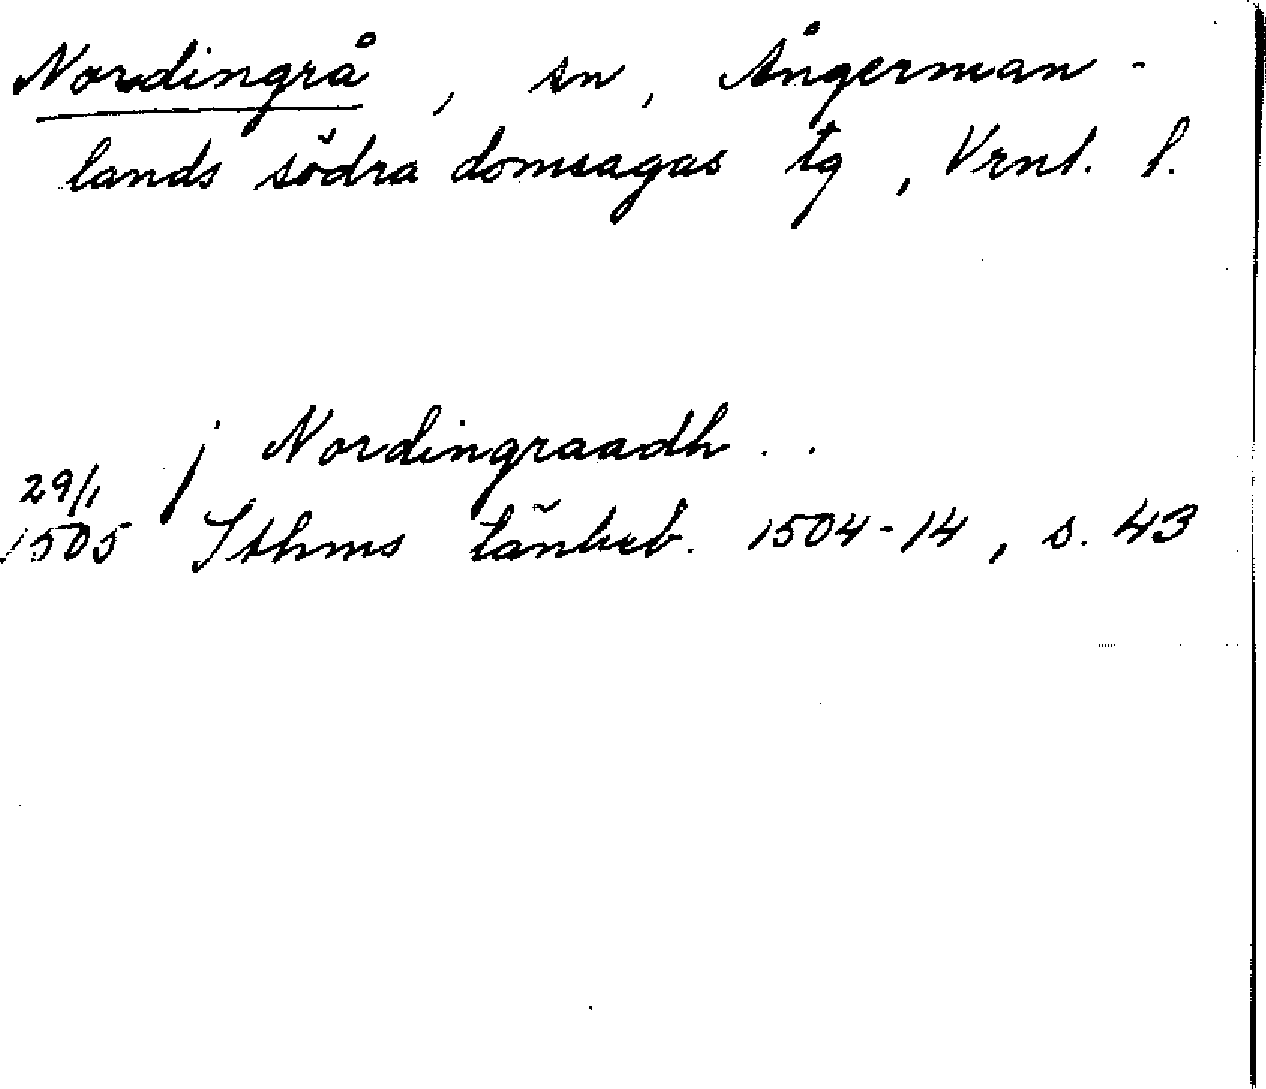 Nordingrå, sn, Ångerman-
lands södra domsagas tg, Vrnl. l.
j Nordingraadh . .
29/1
1505 Sthms tänkeb. 1504-14, s. 43